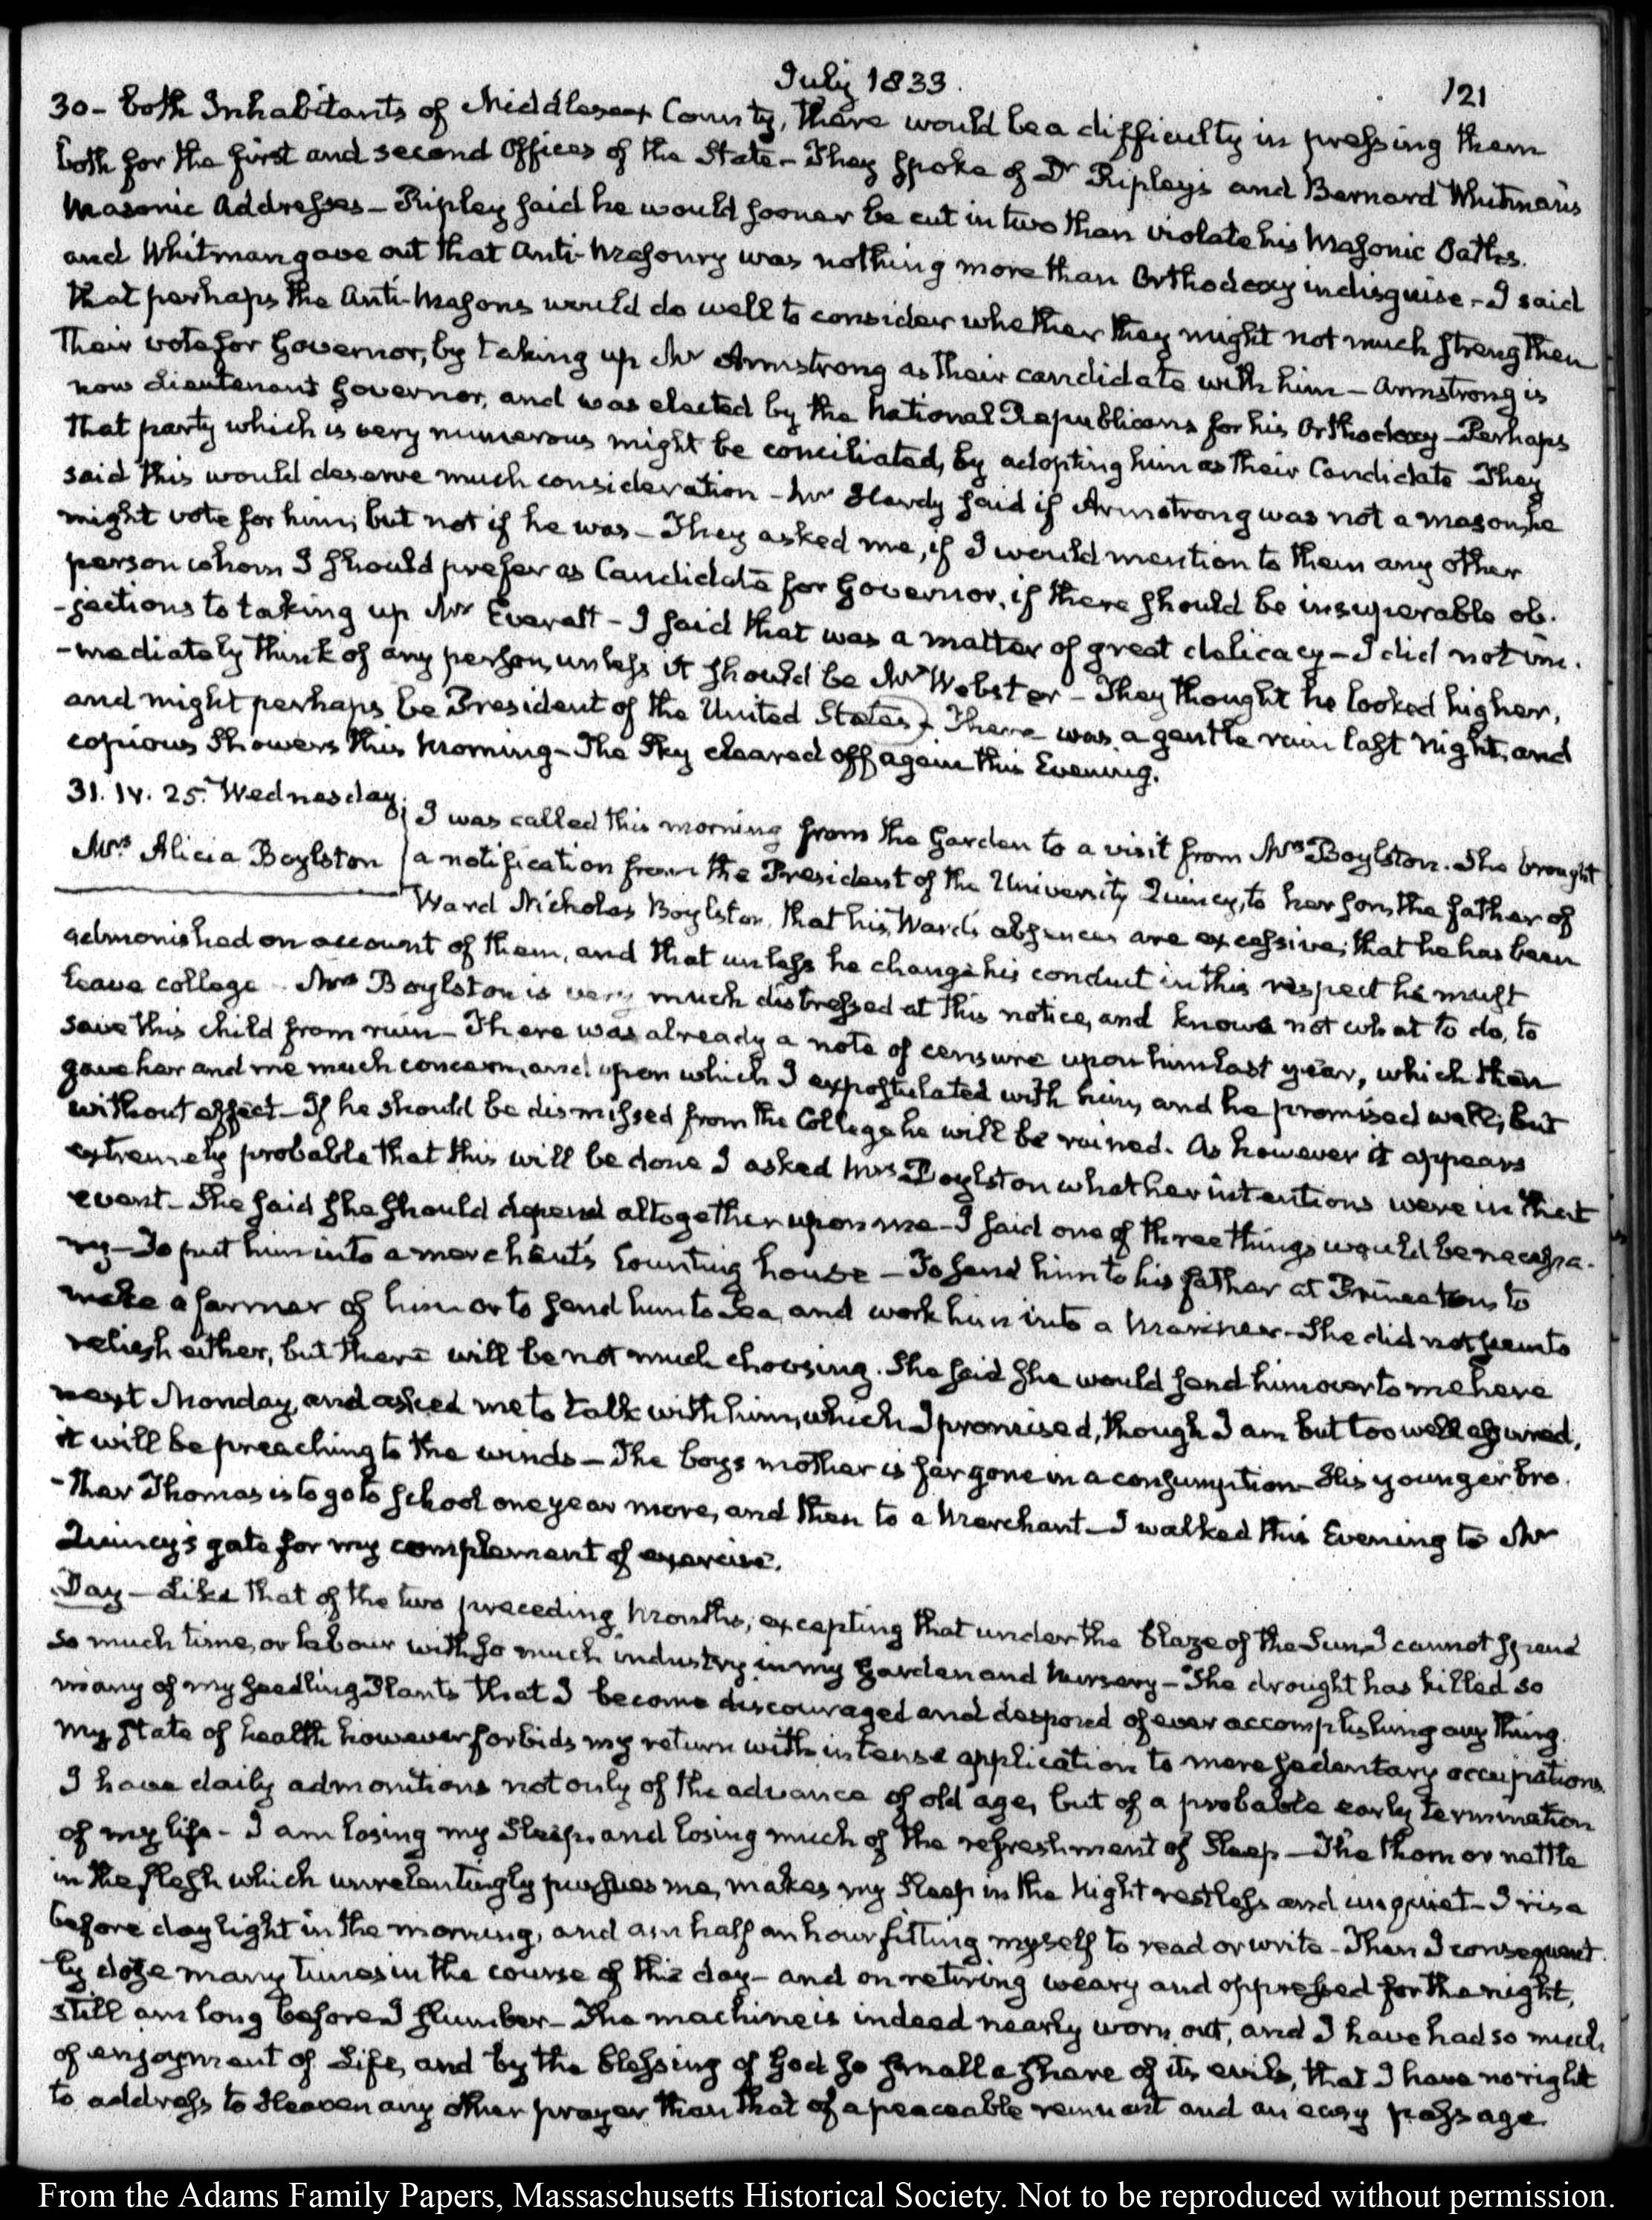 July 1833.
121
30 - both Inhabitants of Middlesex County, there would be a difficulty in pressing them
both for the first and second Offices of the State - They spoke of Dr Ripley's and Bernard Whitman's
Masonic Addresses - Ripley said he would sooner be cut in two than violate his Masonic Oaths.
and Whitman gave out that Anti-Masonry was nothing more than Orthodoxy in disguise - I said
that perhaps the Anti-Masons would do well to consider whether they might not much strengthen
their vote for Governor, by taking up Mr Armstrong as their candidate with him - Armstrong is
now Lieutenant Governor, and was elected by the National Republicans for his Orthodoxy - Perhaps
that party which is very numerous might be conciliated, by adopting him as their Candidate - They
said this would deserve much consideration - Mr Hardy said if Armstrong was not a mason, he
might vote for him; but not if he was - They asked me, if I would mention to them any other
person whom I should prefer as Candidate for Governor, if there should be insuperable ob-
-jections to taking up Mr Everett - I said that was a matter of great delicacy - I did not im-
-mediately think of any person, unless it should be Mr Webster - They thought he looked higher,
and might perhaps be President of the United States - There was a gentle rain last Night, and
copious Showers this Morning - The Sky cleared off again this Evening.
31. IV. 25. Wednesday.
Mrs Alicia Boylston
I was called this morning from the Garden to a visit from Mrs Boylston. She brought
a notification from the President of the University Quincy, to her son, the father of
Ward Nicholas Boylston, that his Ward's absences are excessive; that he has been
admonished on account of them, and that unless he change his conduct in this respect he must
leave college. Mrs Boylston is very much distressed at this notice, and knows not what to do, to
save this child from ruin - There was already a note of censure upon him last year, which then
gave her and me much concern, and upon which I expostulated with him, and he promised well; but
without effect - If he should be dismissed from the College he will be ruined. As however it appears
extremely probable that this will be done I asked Mrs Boylston what her intentions were in that
event - She said she should depend altogether upon me - I said one of three things would be necessa-
ry - To put him into a merchant's Counting house - To send him to his father at Princeton, to
make a farmer of him or to send him to Sea, and work him into a Mariner - She did not seem to
relish either, but there will be not much choosing. She said she would send him over to me here
next Monday, and asked me to talk with him, which I promised, though I am but too well assured,
it will be preaching to the winds - The boys mother is far gone in a consumption - His younger bro-
-ther Thomas is to go to school one year more, and then to a Merchant - I walked this Evening to Mr
Quincy's gate for my complement of exercise.
Day - Like that of the two preceding Months, excepting that under the blaze of the Sun, I cannot spend
so much time, or labour with so much industry in my Garden and Nursery - The drought has killed so
many of my seedling Plants that I become discouraged and despond of ever accomplishing any thing.
My state of health however forbids my return with intense application to more sedentary occupations.
I have daily admonitions not only of the advance of old age, but of a probable early termination
of my life - I am losing my Sleep, and losing much of the refreshment of Sleep - The thorn or nettle
in the flesh which unrelentingly pursues me, makes my Sleep in the Night restless and unquiet - I rise
before day light in the morning, and am half an hour fitting myself to read or write - Then I consequent-
ly doze many times in the course of the day - and on retiring weary and oppressed for the night,
still am long before I slumber - The machine is indeed nearly worn out, and I have had so much
of enjoyment of Life, and by the blessing of God so small a share of its evils, that I have no right
to address to Heaven any other prayer than that of a peaceable remnant and an easy passage
From the Adams Family Papers, Massaschusetts Historical Society. Not to be reproduced without permission.